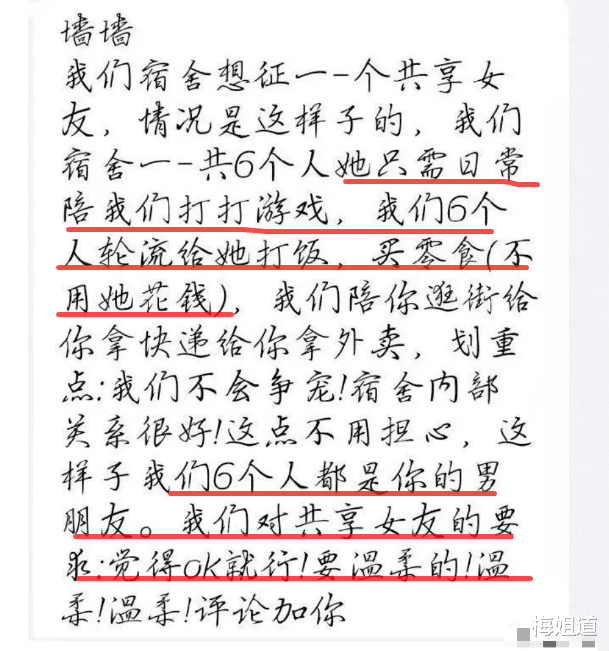 墙墙
我们宿舍想征一-个共享女
友，情况是这样子的，我们
宿舍一-共6个人她只需日常
陪我们打打游戏，我们6个
人轮流给她打饭，买零食(不
用她花钱)，我们陪你逛街给
你拿快递给你拿外卖，划重
点:我们不会争宠!宿舍内部
关系很好!这点不用担心，这
样子我们6个人都是你的男
朋友。我们对共享女友的要
求:觉得ok就行!要温柔的!温
柔!温柔!评论加你
梅姐道